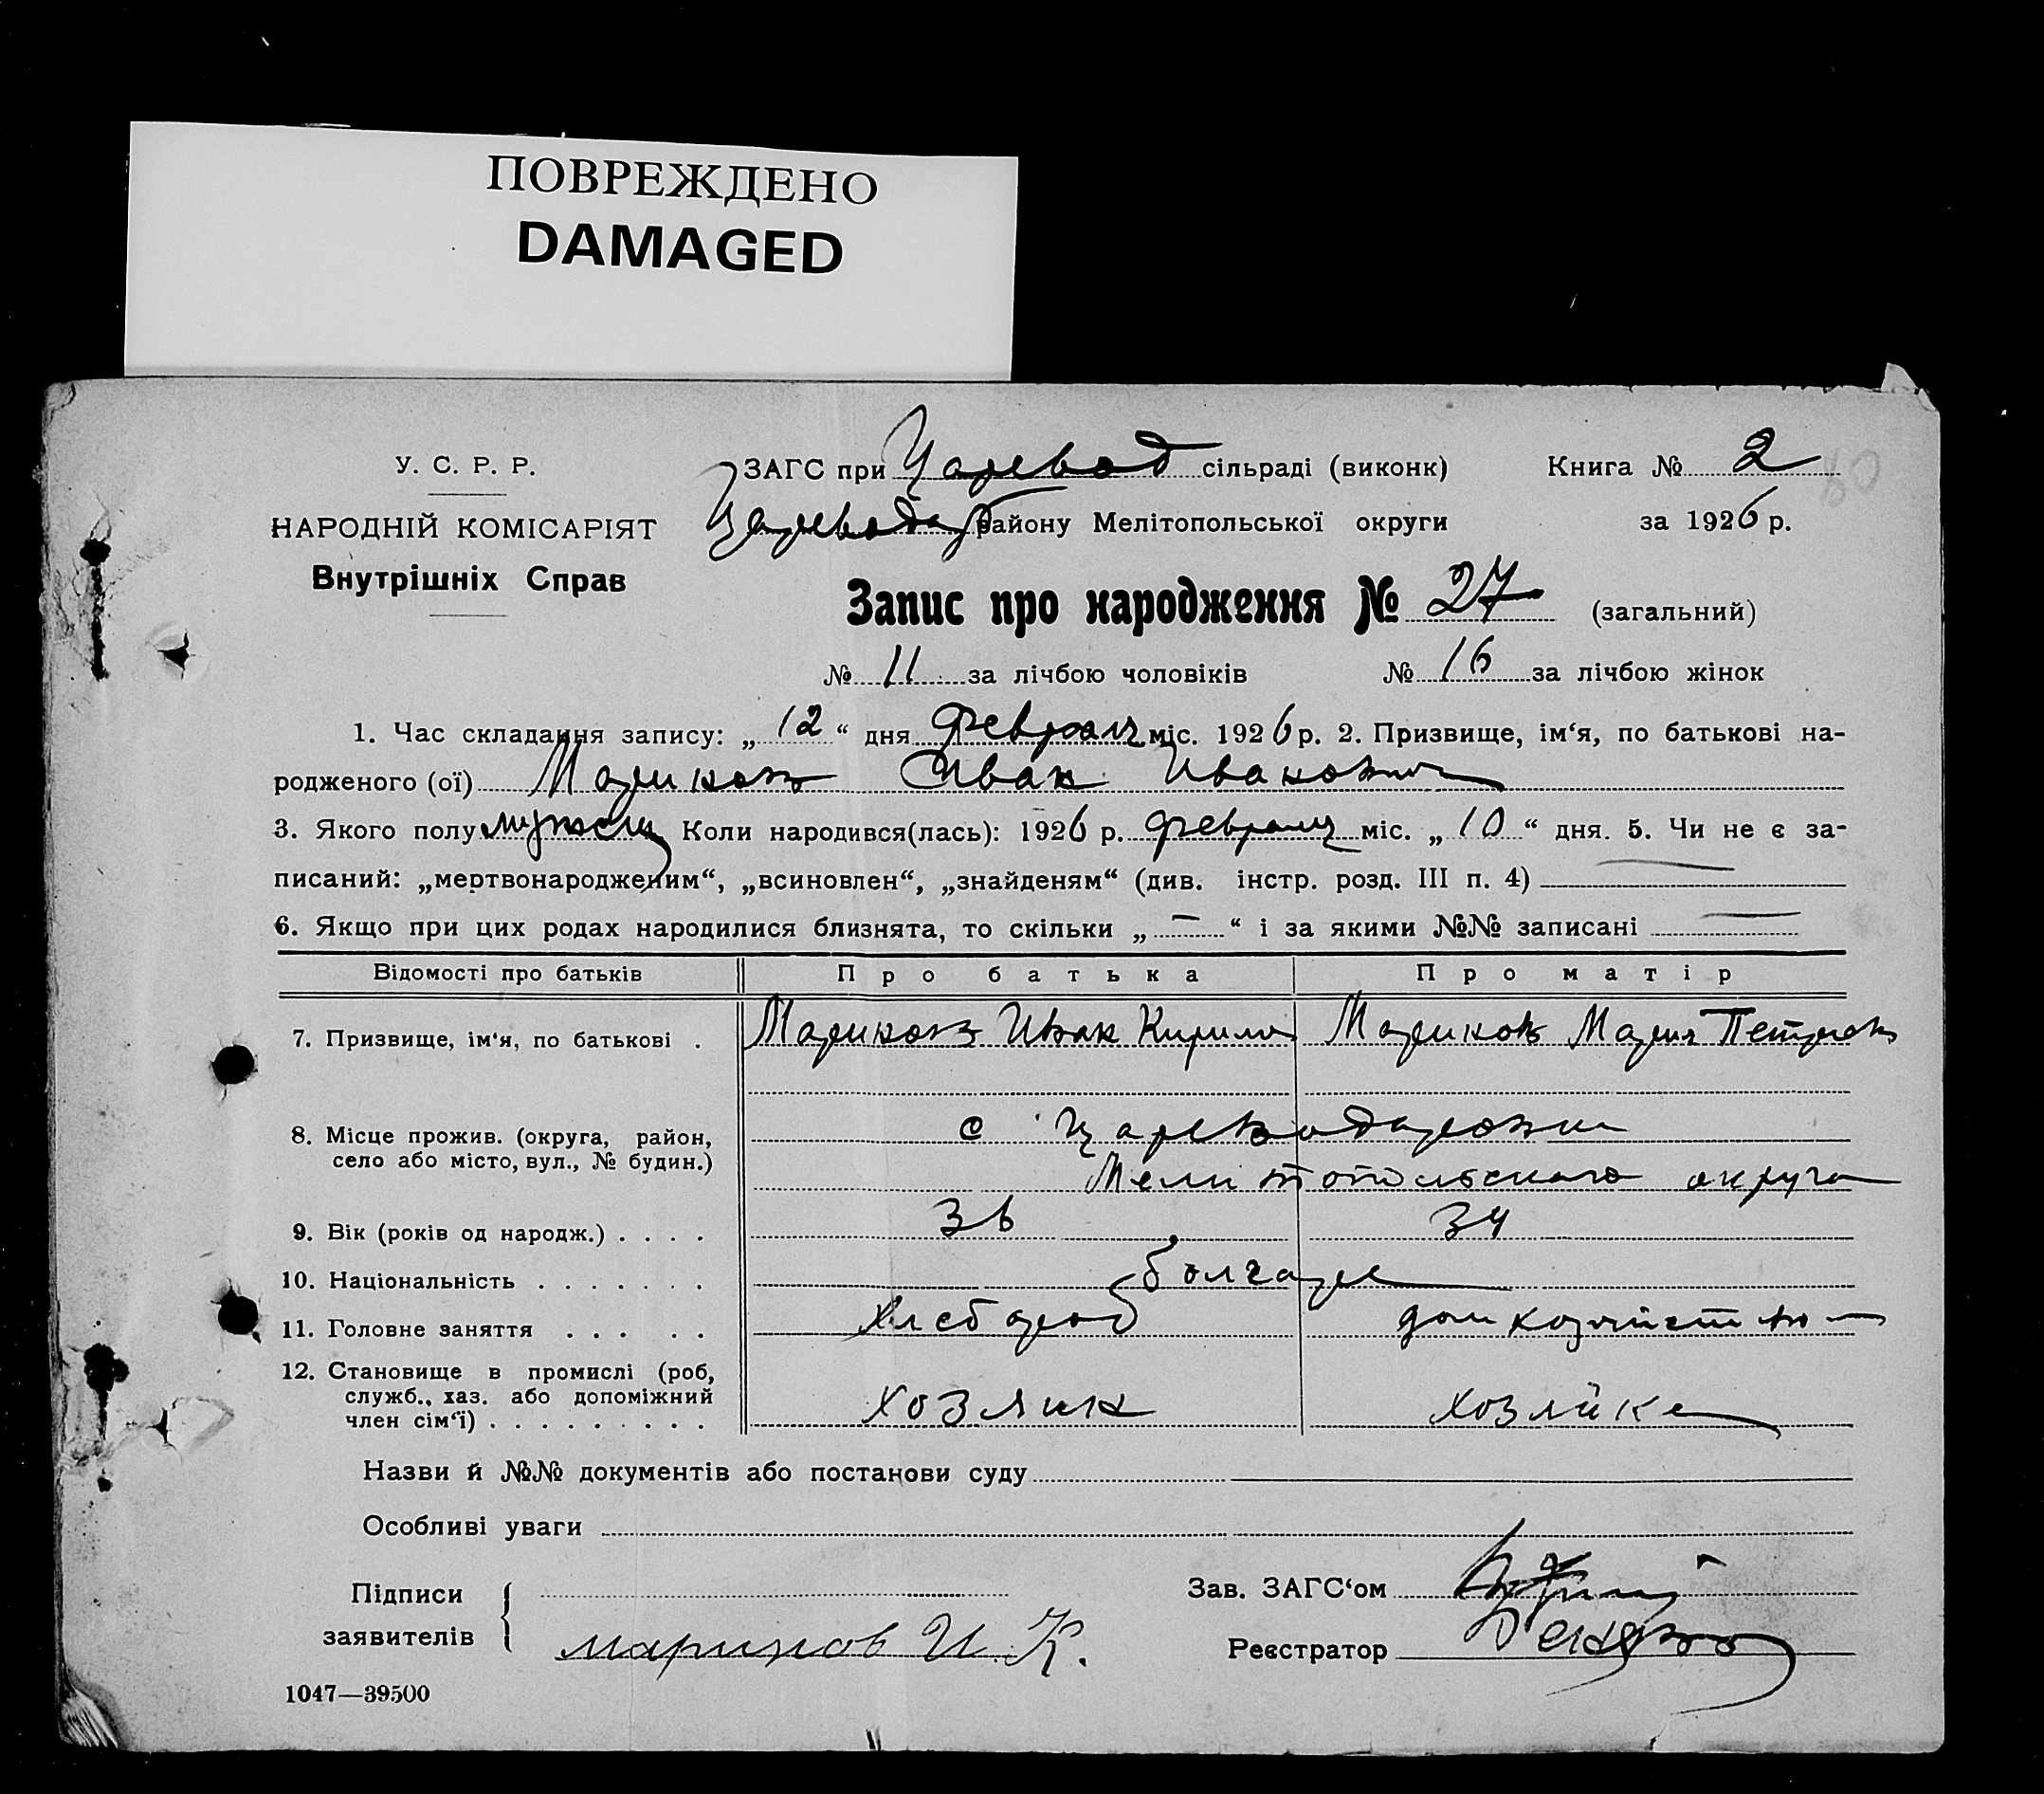 ПОВРЕЖДЕНО
DAMAGED
У. С. Р. Р.
НАРОДНІЙ КОМІСАРІЯТ
Внутрішніх Справ
ЗАГС при Царевод сільраді (виконк)
Книга № 2
60
Цареводар району Мелітопольської округи
за 1926 р.
Запис про народження № 27 (загальний)
№ 11 за лічбою чоловіків № 16 за лічбою жінок
1. Час складання запису: „ 12 “ дня февраля міс. 1926 р. 2. Призвище, ім‘я, по батькові на-
родженого (ої) Маринов Иван Иванович
3. Якого полу мужеск Коли народився(лась): 1926 р. февраля міс. „ 10 “ дня. 5. Чи не є за-
писаний: „мертвонародженим“, „всиновлен“, „знайденям“ (див. інстр. розд. III п. 4) —
6. Якщо при цих родах народилися близнята, то скільки „ — “ і за якими №№ записані —
Відомості про батьків Про батька Про матір
7. Призвище, ім‘я, по батькові . Маринов Иван Кирилов Маринов Мария Петров
8. Місце прожив. (округа, район,
село або місто, вул., № будин.)
с Цареводаровки
Мелитопольского округа
9. Вік (років од народж.) . . . . 36 34
10. Національність . . . . . . . болгаре
11. Головне заняття . . . . . Хлебороб домхозяйство
12. Становище в промислі (роб,
служб., хаз. або допоміжний
член сім‘ї) . . . . . . . . . хозяин хозяйка
Назви й №№ документів або постанови суду
Особливі уваги
Підписи
заявителів
маринов И. К.
Зав. ЗАГС‘ом
Реєстратор
1047—39500